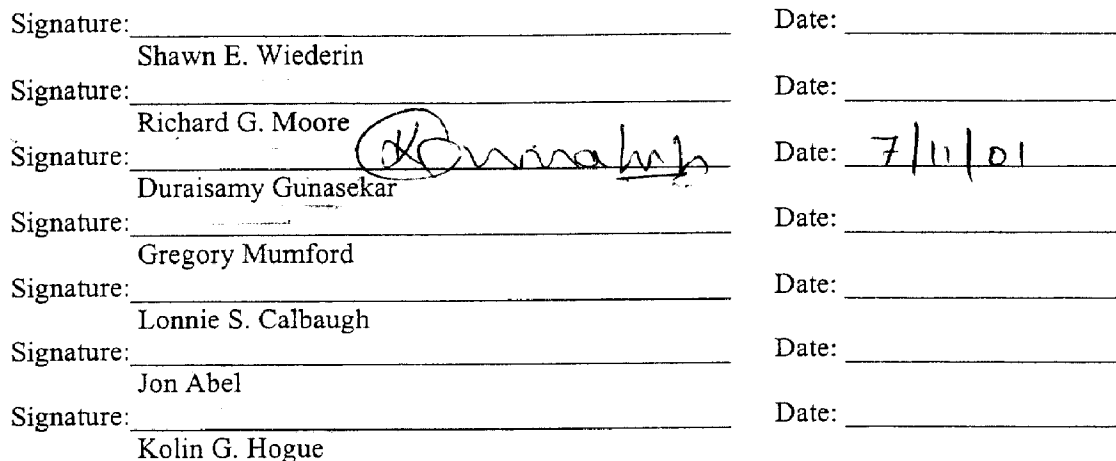 Signature: Date:
Shawn E. Wiederin
Signature: Date:
Richard G. Moore
Signature: Date: 7/11/01
Duraisamy Gunasekar
Signature: Date:
Gregory Mumford
Signature: Date:
Lonnie S. Calbaugh
Signature: Date:
Jon Abel
Signature: Date:
Kolin G. Hogue